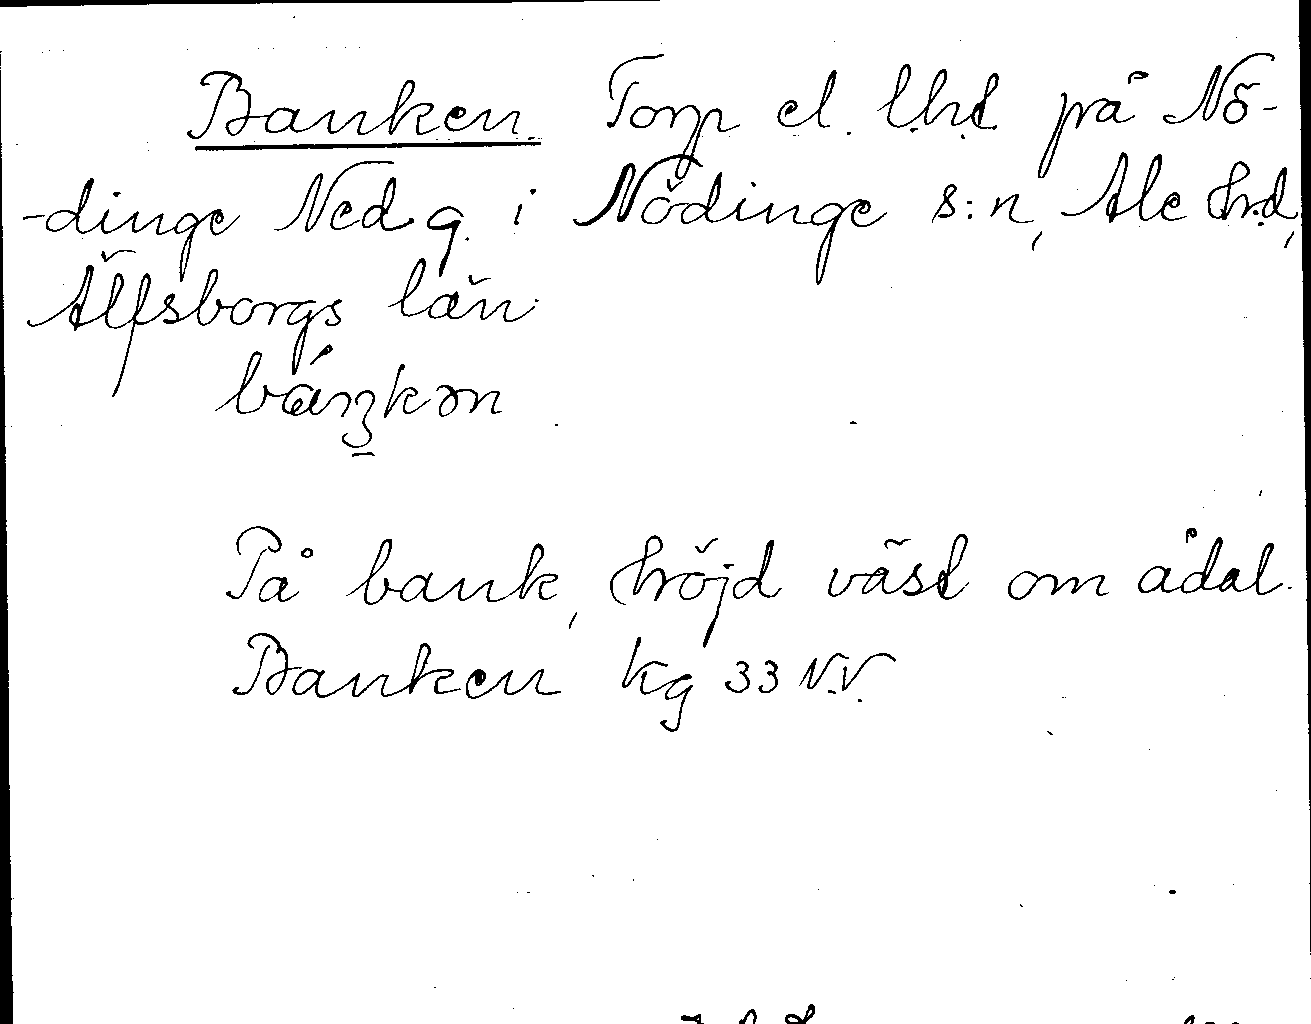 Banken. Torp el. lht på Nö-
-dinge Ned g. i Nödinge s:n, Ale hrd,
Älfsborgs län.
På bank, höjd väst om ådal.
Banken kg 33 N.V.